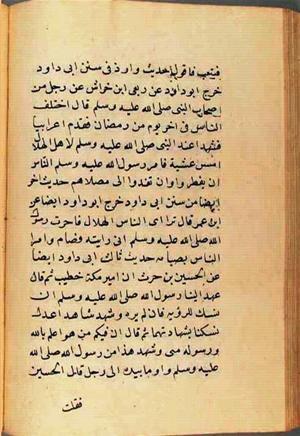 فيتعب فاقول حديث وارد في سنن ابي داود
خرج ابو داود عن ربعي ابن خراش عن رجل من
اصحاب النبي صلى الله عليه وسلم قال اختلف
الناس في اخر يوم من رمضان فقدم اعرابيا
فشهدا عند النبي صلى الله عليه وسلم لاهل الهلال
امس عشية فامر رسول الله صلى الله عليه وسلم الناس
ان يفطروا وان تغدوا الى مصلاهم حديث اخر
ايضا من سنن ابي داود خرج ابو داود ايضا عن
ابن عمر قال تراءى الناس الهلال فاخبرت رسول
الله صلى الله عليه وسلم اني رايته وصام وامر
الناس بصيامه حديث ثالث ابي داود ايضا
عن الحسين بن حرث ان امير مكة خطب ثم قال
عهد الينا رسول الله صلى الله عليه وسلم ان
ننسك للرؤية فان لم يره وشهد شاهدا عدل
نسكنا بشهادتهما ثم قال ان فيكم من هو اعلم بالله
ورسوله مني وشهد هذا من رسول الله صلى الله
عليه وسلم واومأ بيده الى رجل قال الحسين
فقلت